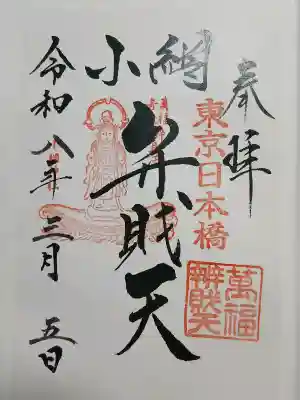 奉拝
東京日本橋
小網
弁財天
萬福
辨財天
令和八年三月五日